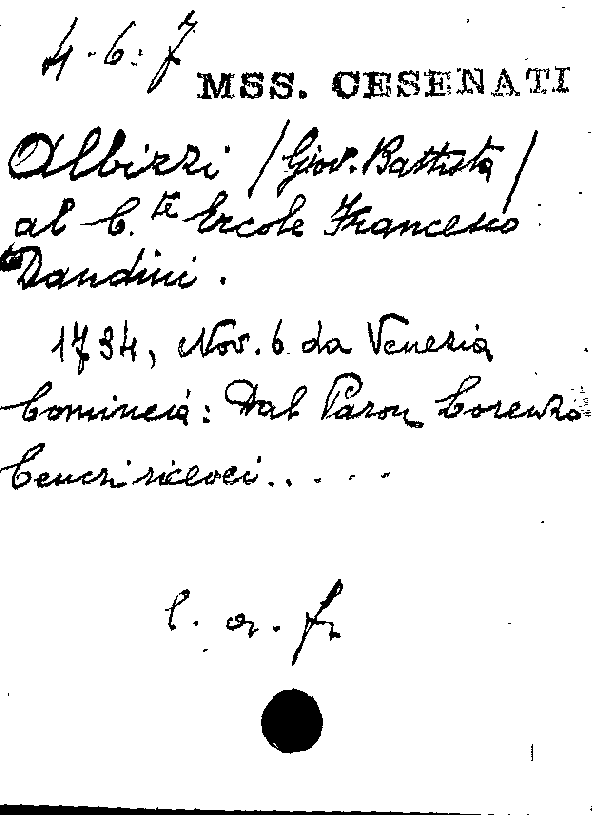 4.6.7
MSS. CESENATI
Albizzi (Giov. Battista)
al C.te Ercole Francesco
Dandini.
1734, Nov. 6 da Venezia
Comincia: Dal Paron Lorenzo
Cenzi ricevei.....
l. a. f.